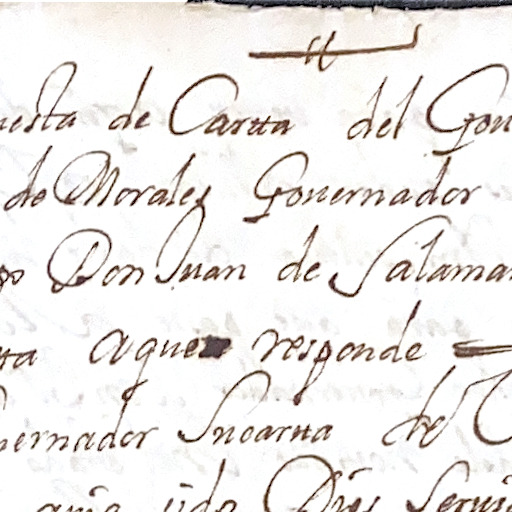 uesta de Cartta del Gou
de Morales Gouernador
Don Juan de Salaman
tta aque responde
uernador Sucartta he
sido Dios Serui